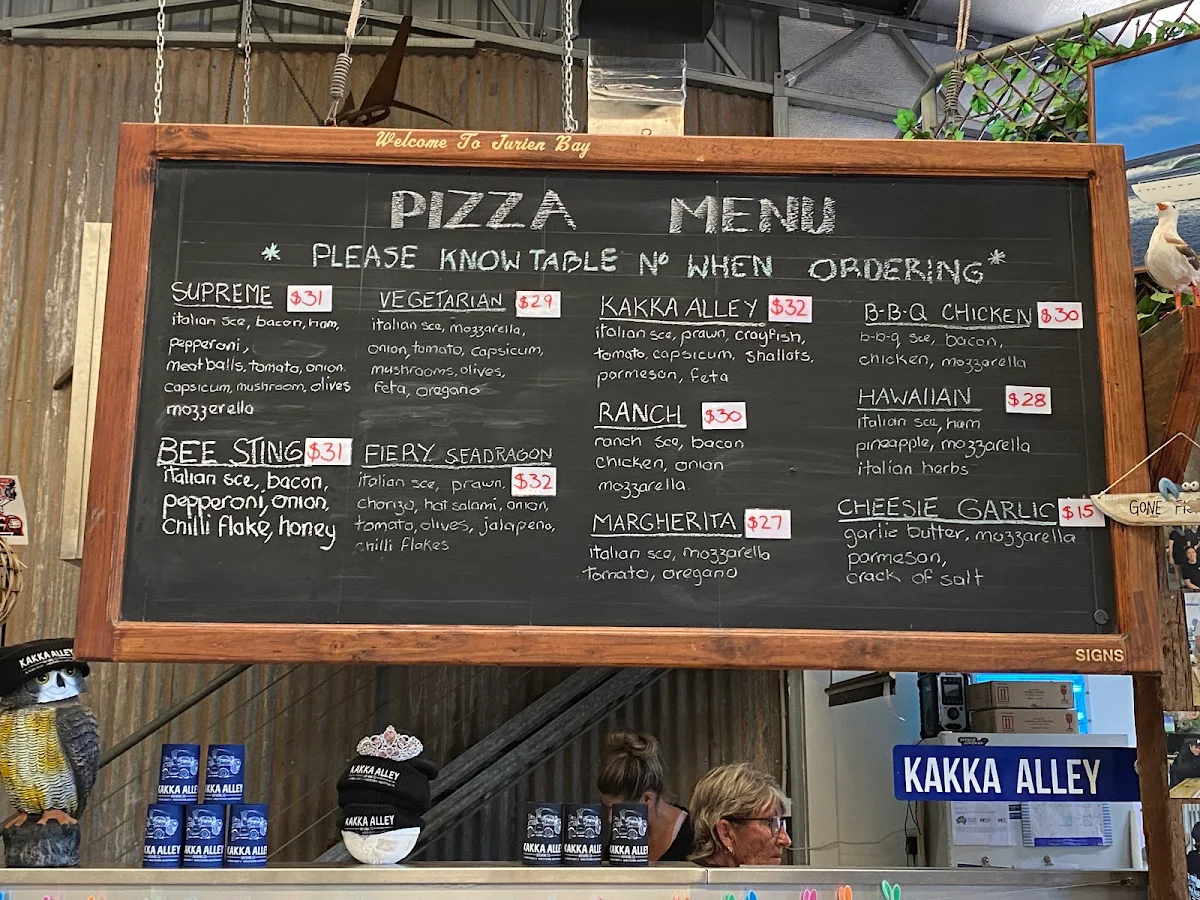 Welcome To Jurien Bay
PIZZA MENU
* PLEASE KNOW TABLE Nº WHEN ORDERING *
SUPREME $31
italian sce, bacon, ham,
pepperoni,
meatballs, tomato, onion.
capsicum, mushroom, olives
mozzerella
BEE STING $31
italian sce, bacon,
pepperoni, onion,
chilli flake, honey
VEGETARIAN $29
italian sce, mozzarella,
onion, tomato, capsicum,
mushrooms, olives,
feta, oregano
FIERY SEADRAGON
italian sce, prawn, $32
chorizo, hot salami, onion,
tomato, olives, jalapeno,
chilli flakes
KAKKA ALLEY $32
italian sce, prawn, crayfish,
tomato, capsicum, shallots,
parmesan, feta
RANCH $30
ranch sce, bacon
chicken, onion
mozzarella.
MARGHERITA $27
italian sce, mozzarella
tomato, oregano
B-B-Q CHICKEN $30
b-b-q sce, bacon,
chicken, mozzarella
HAWAIIAN $28
italian sce, ham
pineapple, mozzarella
italian herbs
CHEESIE GARLIC $15
garlic butter, mozzarella
parmesan,
crack of salt
SIGNS
GONE FIS
KAKKA ALLEY
KAKKA ALLEY
KAKKA ALLEY
KAKKA ALLEY
KAKKA ALLEY
KAKKA ALLEY
KAKKA ALLEY
KAKKA ALLEY
KAKKA ALLEY
KAKKA ALLEY
KAKKA ALLEY
KAKKA ALLEY